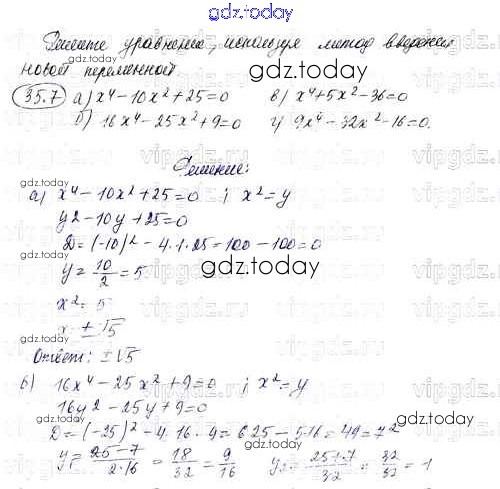 gdz.today
Решите уравнение, используя метод введения
новой переменной
gdz.today
35.7 а) x⁴ - 10x² + 25 = 0 в) x⁴ + 5x² - 36 = 0
б) 16x⁴ - 25x² + 9 = 0 г) 9x⁴ - 32x² - 16 = 0.
Решение:
gdz.today
а) x⁴ - 10x² + 25 = 0 ; x² = y
y2 - 10y + 25 = 0
D = (-10)² - 4·1·25 = 100 - 100 = 0
y = 10/2 = 5
gdz.today
x² = 5
x = ± √5
gdz.today
Ответ: ± √5
б) 16x⁴ - 25x² + 9 = 0 ; x² = y
16y2 - 25y + 9 = 0
D = (-25)² - 4·16·9 = 625 - 516 = 49 = 7²
y₁ = 25-7/2·16 = 18/32 = 9/16 y₂ = 25+7/32 = 32/32 = 1
gdz.today